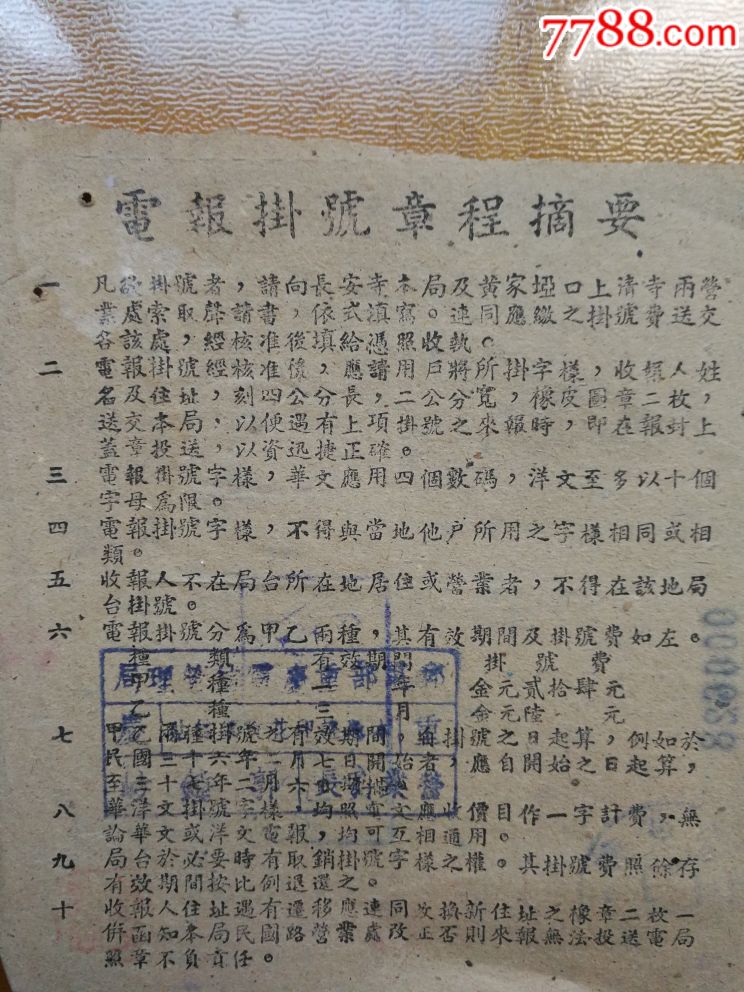 7788.com
電報掛號章程摘要
一 凡欲掛號者，請向長安寺本局及黃家埡口上清寺兩營
業處索取聲請書，依式填寫。連同應繳之掛號費送交
各該處，經核准後填給憑照收執。
二 電報掛號經核准後，應請用戶將所掛字樣，收報人姓
名及住址，刻四公分長，二公分寬，橡皮圖章二枚，
送交本局，以便遇有上項掛號之來報時，即在報封上
蓋章投送，以資迅捷正確。
三 電報掛號字樣，華文應用四個數碼，洋文至多以十個
字母為限。
四 電報掛號字樣，不得與當地他戶所用之字樣相同或相
類。
五 收報人不在局台所在地居住或營業者，不得在該地局
台掛號。
六 電報掛號分為甲乙兩種，其有效期間及掛號費如左。
種類 有效期間 掛號費
甲種 一年 金元貳拾肆元
乙種 三月 金元陸元
七 甲乙兩種掛號之有效期間，自掛號之日起算，例如於
民國三十六年
八 至洋文掛號字樣 均照 文 應收價目作一字計費，無
論華文或洋文電報，均可互相通用。
九 局台於必要時有取銷掛號字樣之權。其掛號費照餘存
有效期間按比例退還之。
十 收報人住址遇有遷移應連同改換新住址之橡章二枚一
併函知本局民國路營業處改正否則來報無法投送電局
照章不負責任。
000638